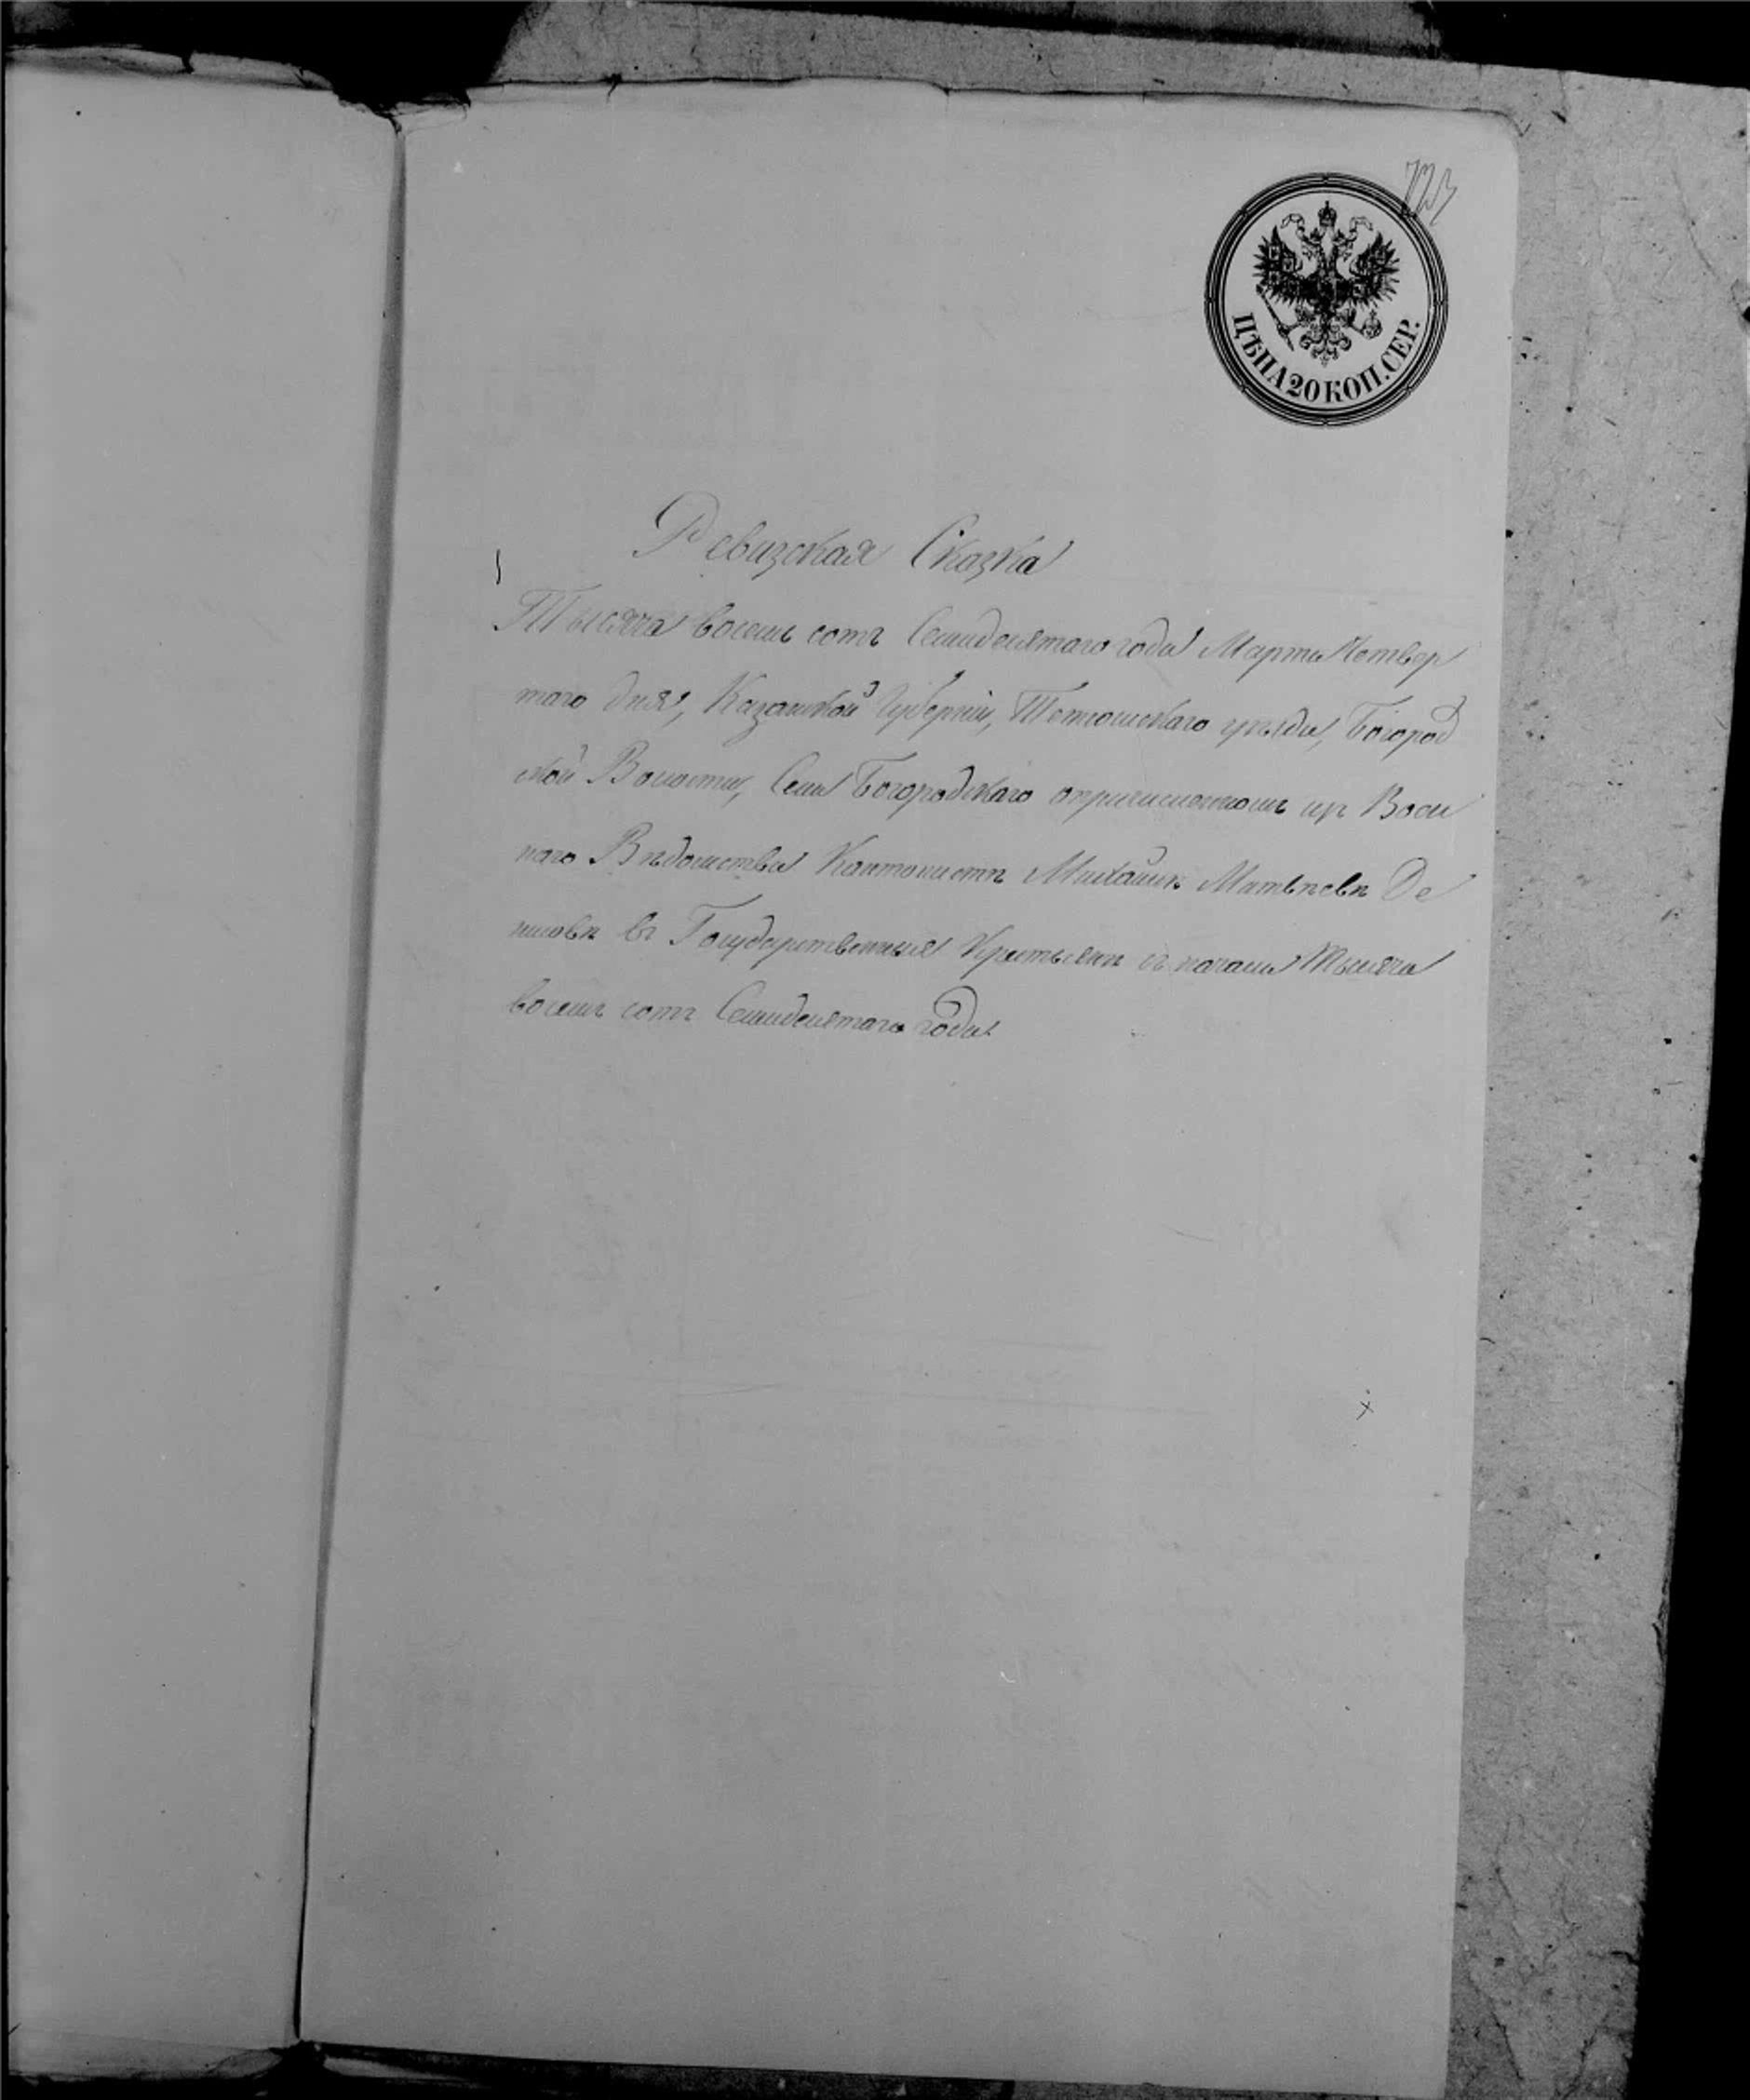 723
ЦѢНА 20 КОП. СЕР.
Ревизская Сказка
Тысяча восемь сотъ Семидесятаго года Марта Четвер
таго дня, Казанской Губерніи, Тетюшскаго уѣзда, Богород
ской Волости, Села Богородскаго опричисленномъ изъ Воен
наго Вѣдомства Кантонистѣ Михаилѣ Матвѣевѣ Де
нисовѣ въ Государственныя Крестьяне съ начала Тысяча
восемь сотъ Семидесятаго года